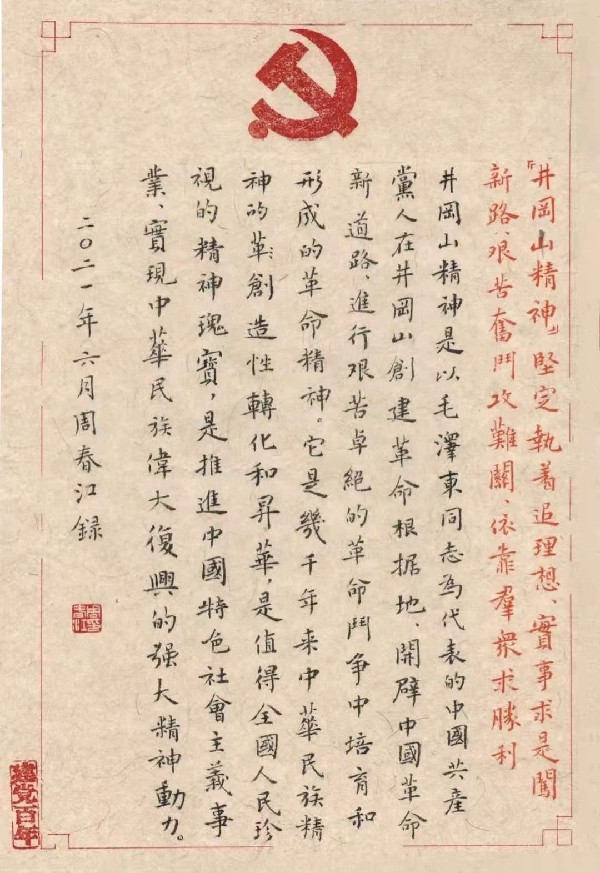 『井岡山精神』堅定執着追理想、實事求是闖
新路、艱苦奮鬥攻難關、依靠羣衆求勝利
井岡山精神是以毛澤東同志為代表的中國共產
黨人在井岡山創建革命根据地、開闢中國革命
新道路、進行艱苦卓絕的革命鬥争中培育和
形成的革命精神。它是幾千年来中華民族精
神的革創造性轉化和昇華,是值得全國人民珍
視的精神瑰寶,是推進中國特色社會主義事
業、實現中華民族偉大復興的强大精神動力。
二〇二一年六月周春江録
建党百年